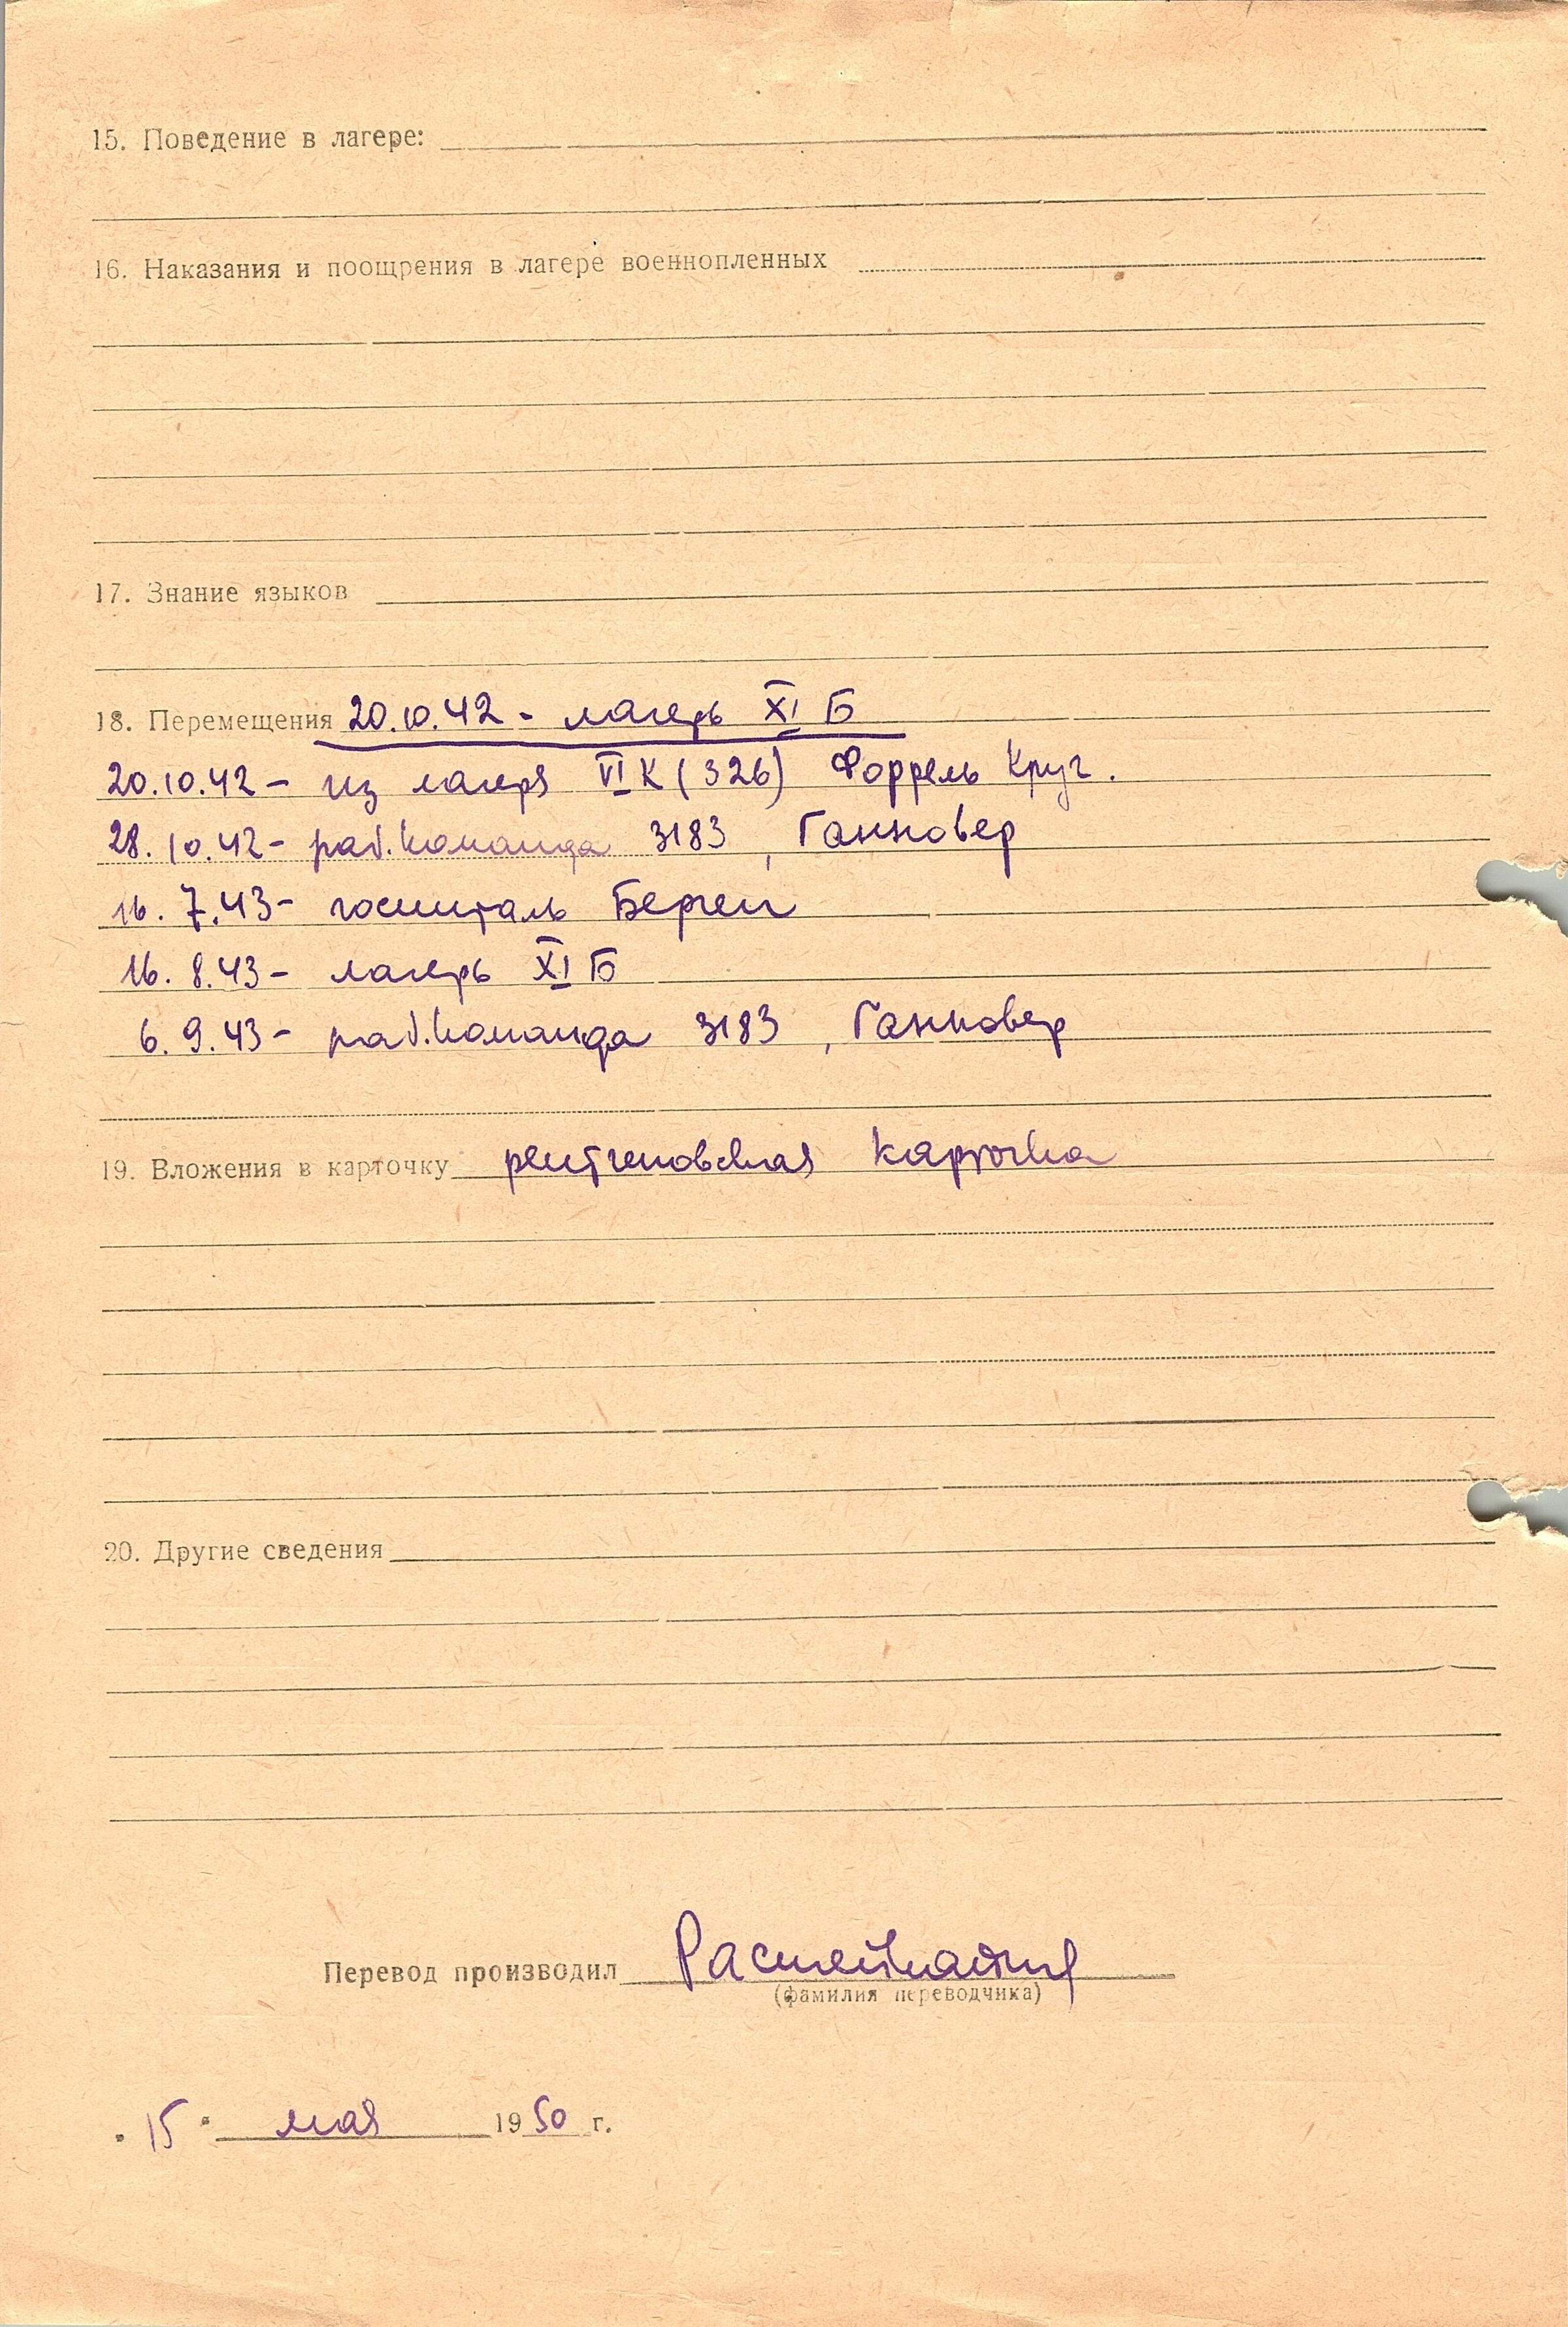 15. Поведение в лагере:
16. Наказания и поощрения в лагере военнопленных
17. Знание языков
18. Перемещения 20.10.42 - лагерь XI Б
20.10.42 - из лагеря VI К (326) Форрель Круг.
28.10.42 - раб.команда 3183, Ганновер
16.7.43 - госпиталь Берген
16.8.43 - лагерь XI Б
6.9.43 - раб.команда 3183, Ганновер
19. Вложения в карточку рентгеновская карточка
20. Другие сведения
Перевод производил
(фамилия переводчика)
"15" мая 1950 г.